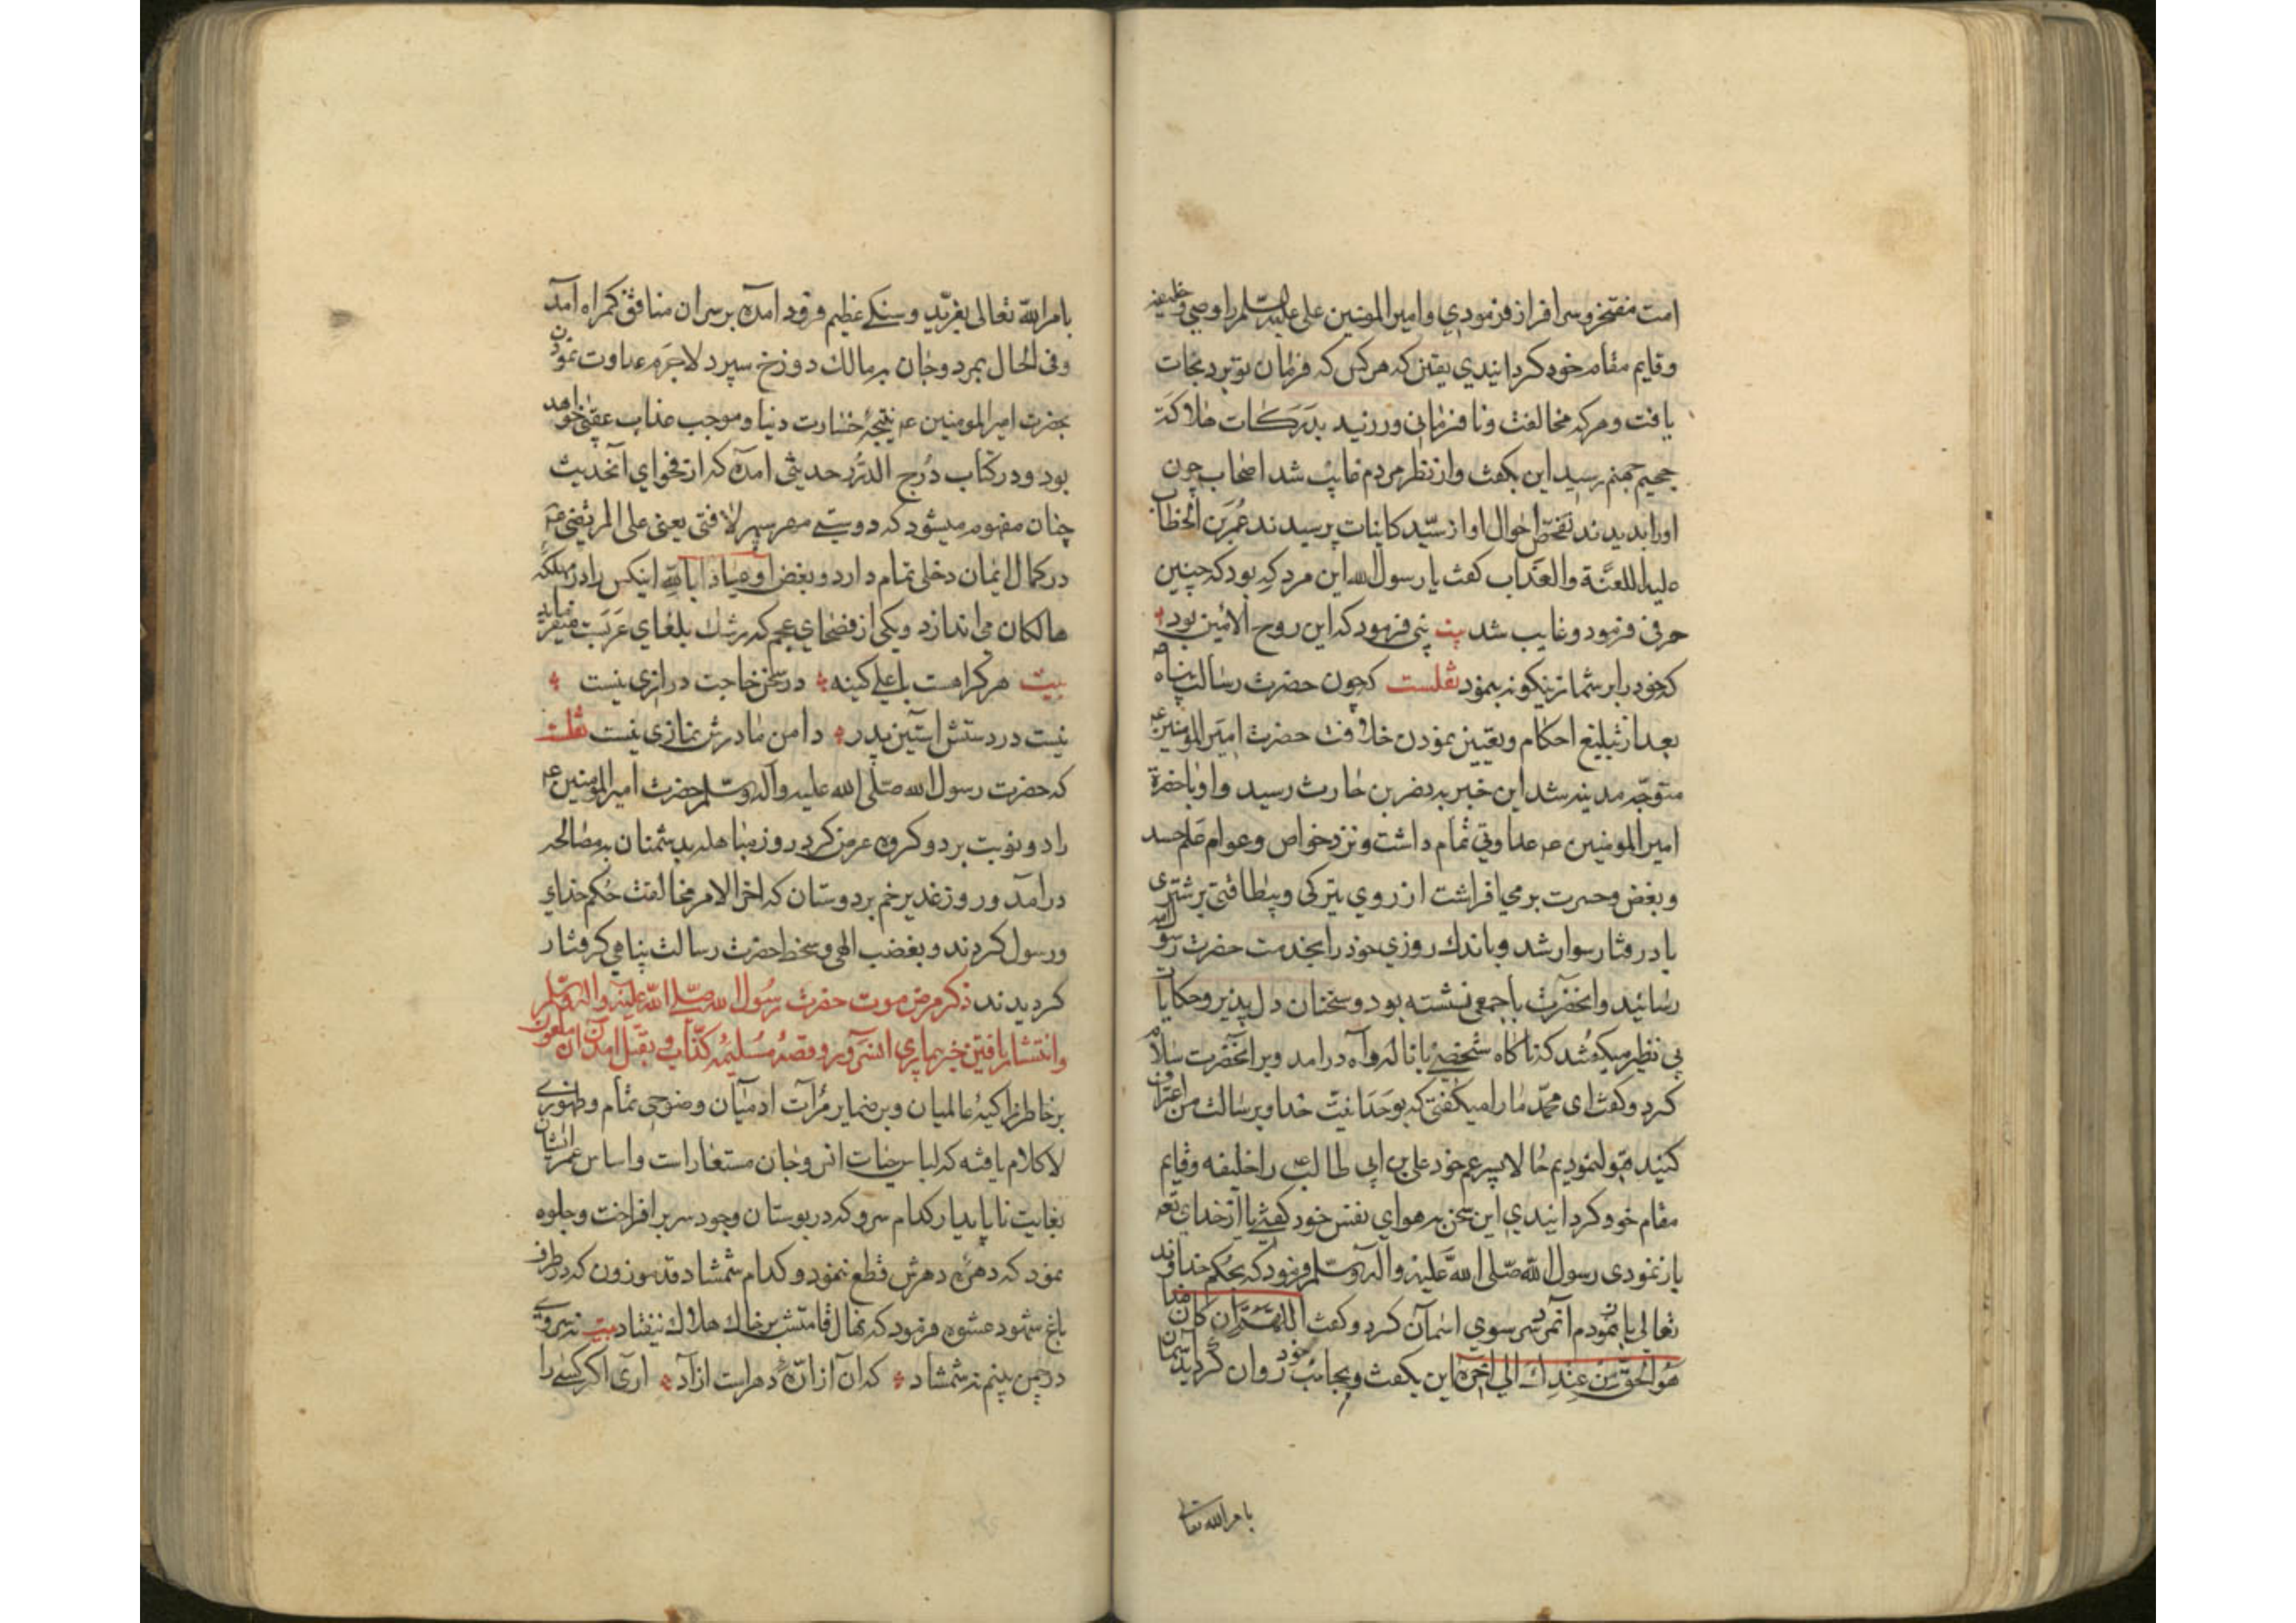 امت مفتخر و سرافراز فرمودی و امیرالمومنین علی علیه السلم را وصی و خلیفه
و قایم مقام خود کردانیدی یقین که هرکس که فرمان تو برد نجات
یافت و هرکه مخالفت و نافرمانی ورزید بدرکات هلاکة
جحیم جهنم رسید این بکفت و از نظر مردم غایب شد اصحاب چون
اورا بدیدند تفحص احوال او از سید کاینات پرسیدند عمر بن الخطاب
علیه اللعنة والعذاب کفت یا رسول الله این مرد که بود که چنین
حرفی فرمود و غایب شد بیت نبی فرمود که این روح الامین بود
که خود را بر شما زینکونه بنمود نقلست که چون حضرت رسالت پناه
بعد از تبلیغ احکام و تعیین نمودن خلافت حضرت امیرالمومنین
متوجه مدینه شد این خبر به نضر بن حارث رسید و او با حضرة
امیرالمومنین عداوتی تمام داشت و نزد خواص و عوام علم حسد
و بغض و حسرت برمی افراشت از روی تیرکی و بیطاقتی بر شتری
بادرفتار سوار شد و باندک روزی خود را بخدمت حضرت رسول الله
رسانید و انحضرت با جمعی نشسته بود و سخنان دل پذیر و حکایات
بی نظیر میکفتند که ناکاه شخصی با ناله و آه درامد و بر انحضرت سلام
کرد و کفت ای محمد ما را میکفتی که بوحدانیت خدا و برسالت من اعتراف
کنید قبول نمودیم حالا پسر عم خود علی بن ابی طالب را خلیفه و قایم
مقام خود کردانیدی این سخن به هوای نفس خود کفتی یا از خدای تعه
باز نمودی رسول الله صلی الله علیه و آله وسلم فرمود که بحکم خداوند
تعالی باز نمودم آنمرد سر سوی اسمان کرد و کفت اللهم ان کان هذا
هو الحق من عندک الی اخره این بکفت و بجانب خود روان کردید سمان
بامر الله تعالی
بامر الله تعالی بغرید و سنکی عظیم فرود امده بر سر ان منافق کمراه آمد
و فی الحال بمرد و جان به مالک دوزخ سپرد لاجرم عداوت نمودن
بحضرت امیرالمومنین نتیجۀ خسارت دنیا و موجب عذاب عقبی خواهد
بود و در کتاب درج الدرر حدیثی امده که از فحوای آنحدیث
چنان مفهوم میشود که دوستی مهر سپهر لافتی یعنی علی المرتضی
در کمال ایمان دخلی تمام دارد و بغض او عیاذا بالله اینکس را در مهلکه
هالکان می اندازد و یکی از فصحای عجم که رشک بلغای عربست میفرماید
بیت هرکرا هست با علی کینه در سخن حاجت درازی نیست
نیست در دستش استین پدر دامن مادرش نمازی نیست نقلست
که حضرت رسول الله صلی الله علیه و آله وسلم حضرت امیرالمومنین
را دو نوبت بر دو کروه عرض کرد روز مباهله بدشمنان به مصالحه
درآمد و روز غدیر خم بر دوستان که اخر الامر مخالفت حکم خدای
و رسول کردند و بغضب الهی و سخط حضرت رسالت پناهی کرفتار
کردیدند ذکر مرض موت حضرت رسول الله صلی الله علیه و اله وسلم
و انتشار یافتن خبر بیماری انسرور و قصۀ مسلیمه کذاب و بقتل امدن آن ملعون
بر خاطر زاکیۀ عالمیان و بر ضمایر مرآت ادمیان وضوحی تمام و ظهوری
لاکلام یافته که لباس حیات انس و جان مستعارست و اساس عمر ایشان
بغایت ناپایدار کدام سرو که در بوستان وجود سر برافراخت و جلوه
نمود که دهرش قطع ننمود و کدام شمشاد قد موزون که در طرف
باغ شهود عشوه فرمود که نهال قامتش بر خاک هلاک نیفتاد بیت نه سروی
در چمن بینم نه شمشاد که آن از ارۀ دهرست ازاد اری اکر کسی را